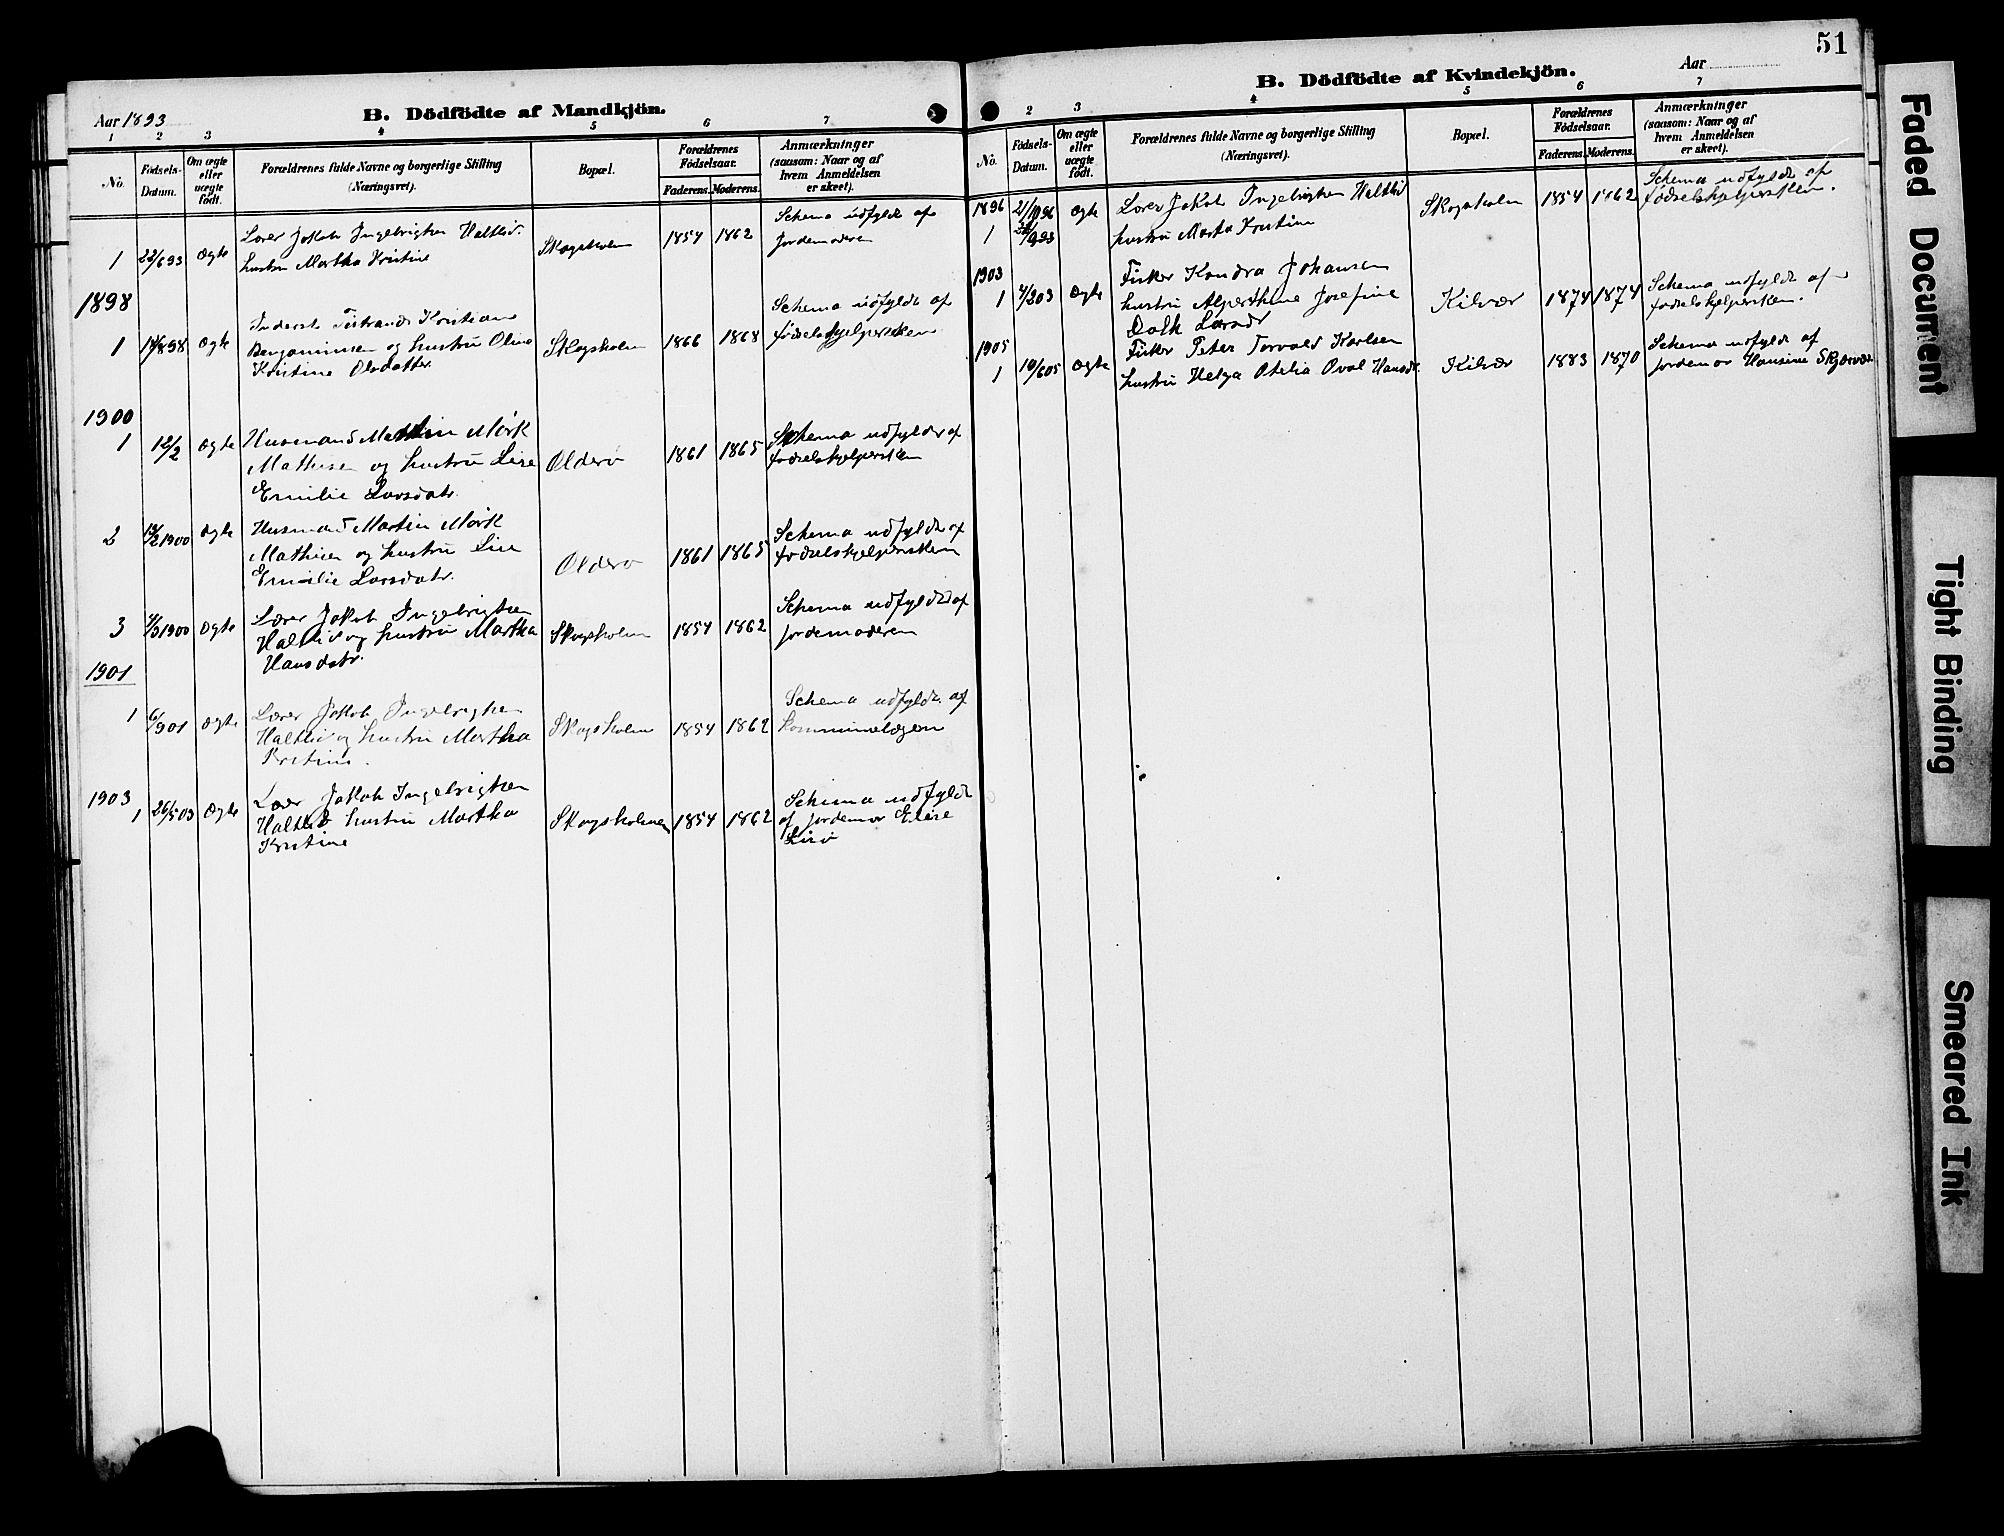 51
Aar 1893
B. Dödfödte af Mandkjön.
1 2 3 4 5 6 7
No.
Födsels-Datum.
Om ægte eller uægte födt.
Forældrenes fulde Navne og borgerlige Stilling
(Næringsvei).
Bopæl.
Forældrenes Födselsaar.
Faderens. Moderens.
Anmærkninger
(saasom: Naar og af
hvem Anmeldelsen
er skeet).
Lærer Jakob Ingebrigtsen Haltlid.
Schema udfyldt af
1 22/6 93 Ægte hustru Martha Kristine Skogsholm 1854 1862 Jordemoderen
1898
Kristian
Schema udfyldt af
1 98 Ægte Benjaminsen og hustru Oline Skogsholm 1866 1868 fødselshjelpersken
Kristine Olsdatter
1900
1 12/2 Ægte Husmand Martin Mörk
Schema udfyldt af
Mathisen og hustru Lise Olderø 1861 1865 fødselshjelpersken
Emilie Larsdatr.
2 1900 Ægte Husmand Martin Mörk
Schema udfyldt af
Mathisen og hustru Lise Olderø 1861 1865 fødselshjelpersken
Emilie Larsdatr.
Lærer Jakob Ingebrigtsen
Schema udfyldt af
3 1900 Ægte Haltlid og hustru Martha Skogsholm 1854 1862 jordemoderen
Hansdatr.
1901
Schema udfyldt af
1 6/9 01 Ægte Lærer Jakob Ingebrigtsen
Haltlid og hustru Martha Skogsholm 1854 1862 Kommunelægen
Kristine.
1903
Lærer Jakob Ingebrigtsen
Schema udfyldt
1 26/5 03 Ægte Haltlid hustru Martha Skogsholmen 1854 1862 af jordemor Elise
Kristine
B. Dödfödte af Kvindekjön.
Aar
2 3 4 5 6 7
No.
Födsels-Datum.
Om ægte eller uægte födt.
Forældrenes fulde Navne og borgerlige Stilling
(Næringsvei).
Bopæl.
Forældrenes Födselsaar.
Faderens. Moderens.
Anmærkninger
(saasom: Naar og af
hvem Anmeldelsen
er skeet).
1896 Ægte Lærer Jakob Ingebrigtsen Haltlid Skogsholm 1854 1862 Schema udfyldt af
fødselshjelpersken.
1 hustru Marta Kristine
1903
Fisker Johansen
1 4/2 03 Ægte hustru Josefine Kilvær 1874 1874 Schema udfyldt af
fødselshjelpersken.
Larsdr
1905
Fisker Peter Torvald Karlsen
Schema udfyldt af
1 10/6 05 Ægte hustru Helga Otelia Hansdr. Kilvær 1883 1870 jordemor Hansine Skjærvær
Faded Document
Tight Binding
Smeared Ink